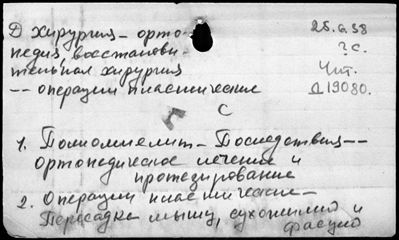 Д Хирургия - орто-
педия, восстанови-
тельная хирургия
-- операции пластические
25.6.38
? с.
Чит.
Д19080.
С
1. Полиомиелит - Последствия --
ортопедическое лечение и
протезирование
2. Операции пластические -
Пересадка мышц, сухожилий и
фасций